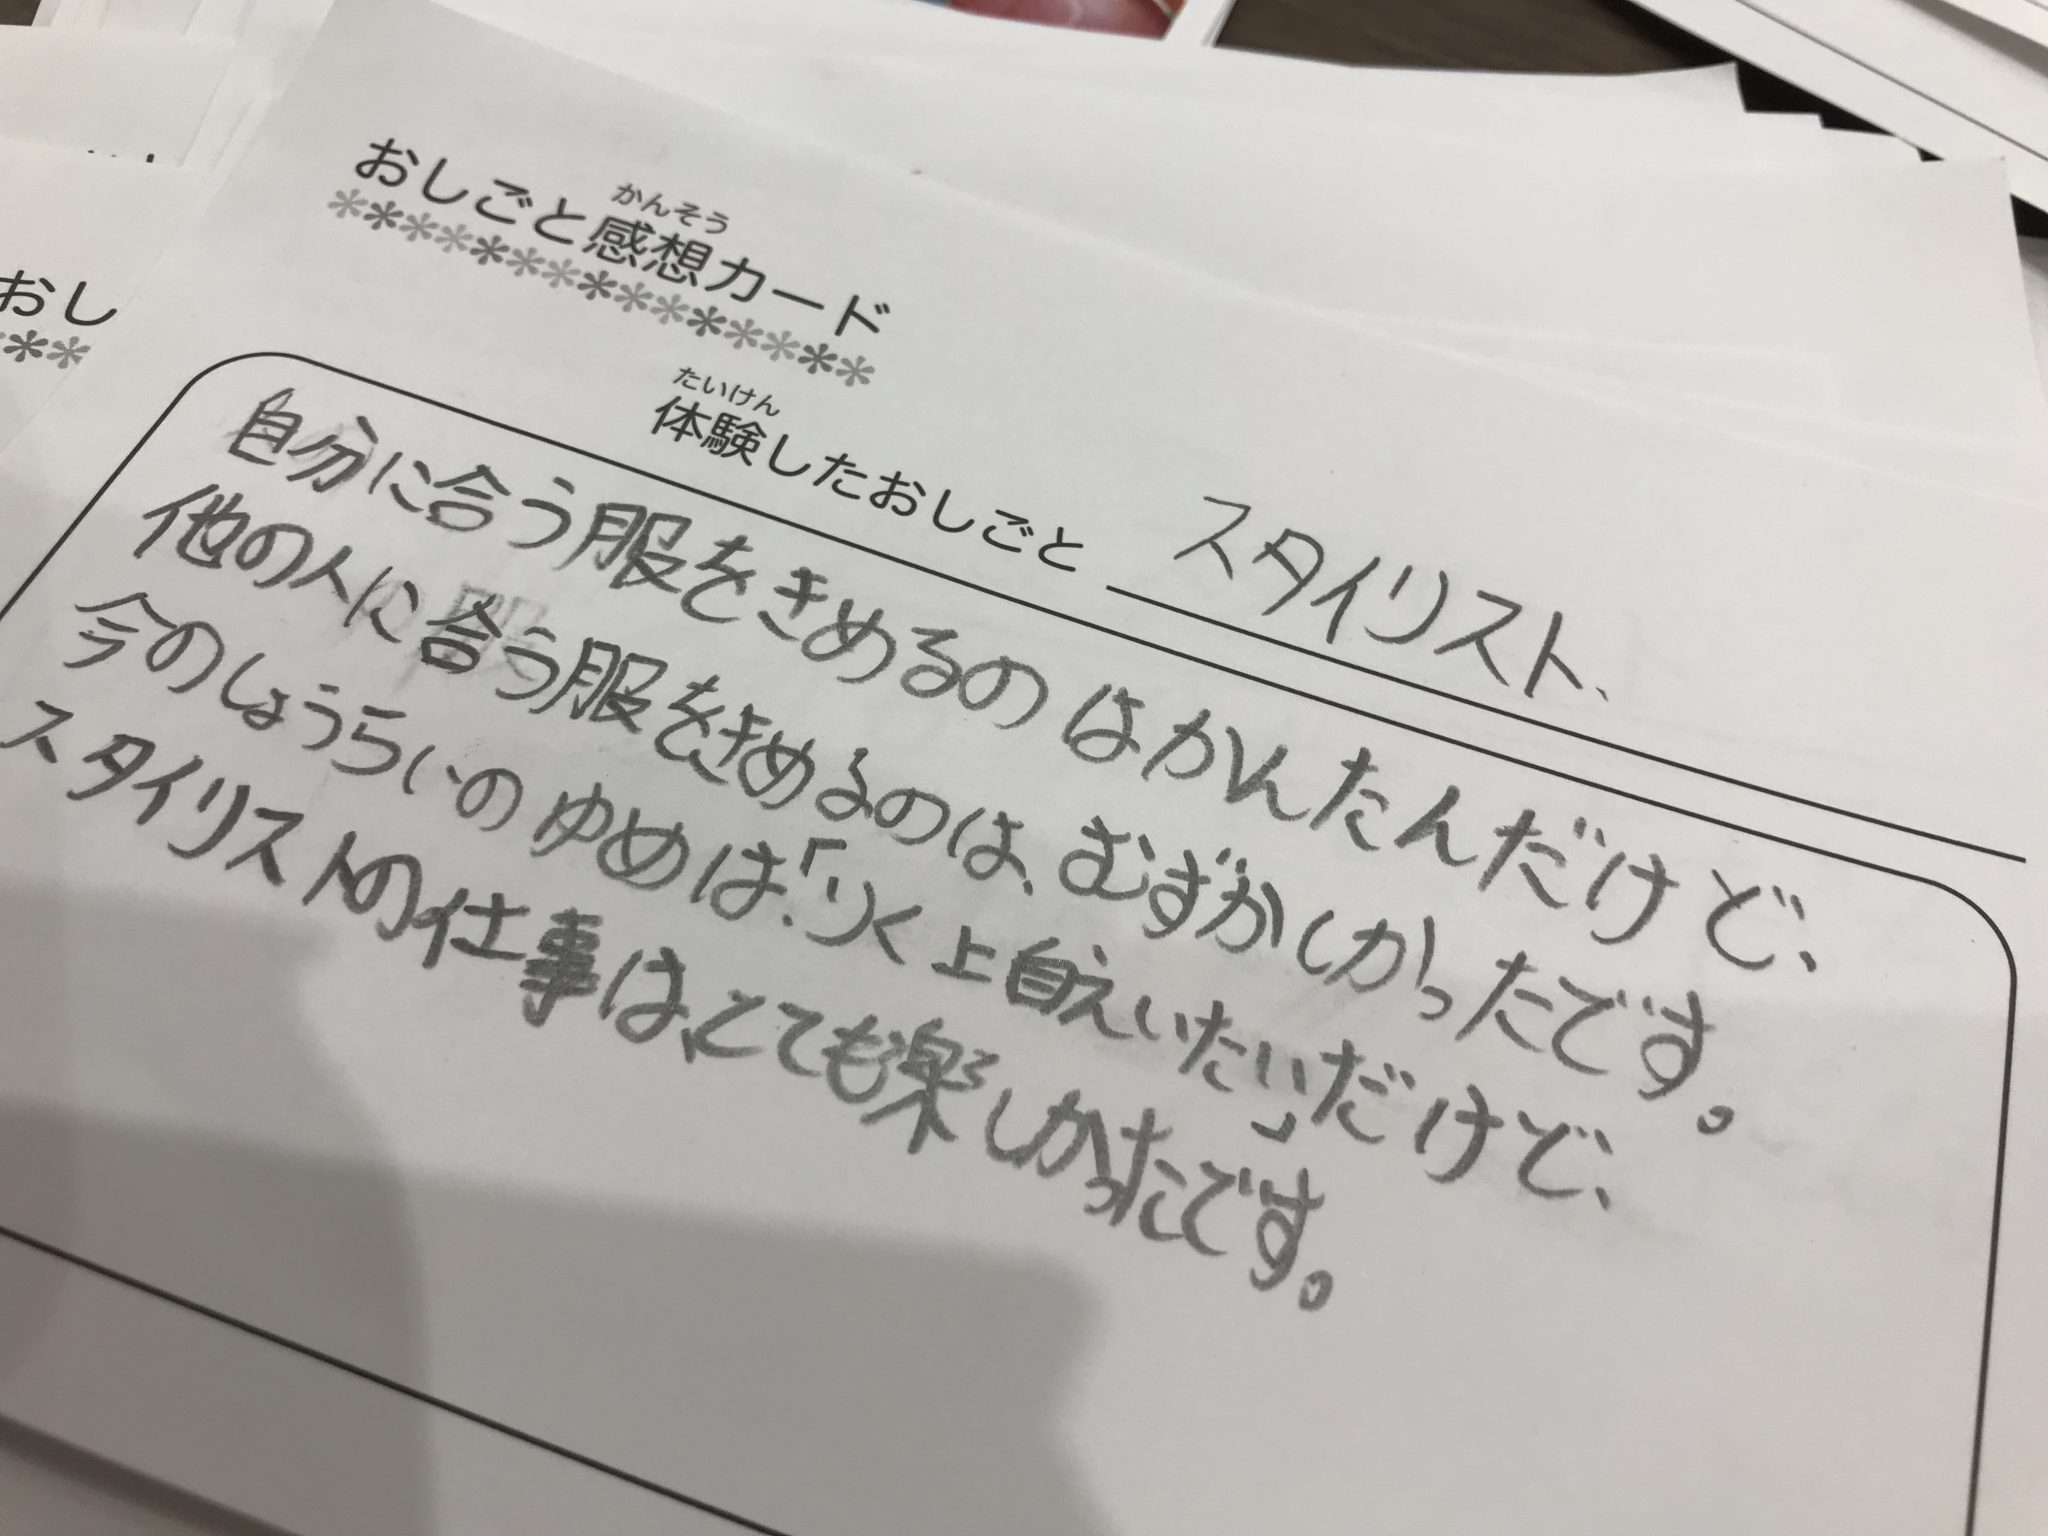 かんそう
おしごと感想カード
たいけん
体験したおしごと スタイリスト、
自分に合う服をきめるのはかんたんだけど、
他の人に合う服をきめるのは、むずかしかったです。
今のしょうらいのゆめは、「りく上自えいたい」だけど、
スタイリストの仕事は、とても楽しかったです。
おし